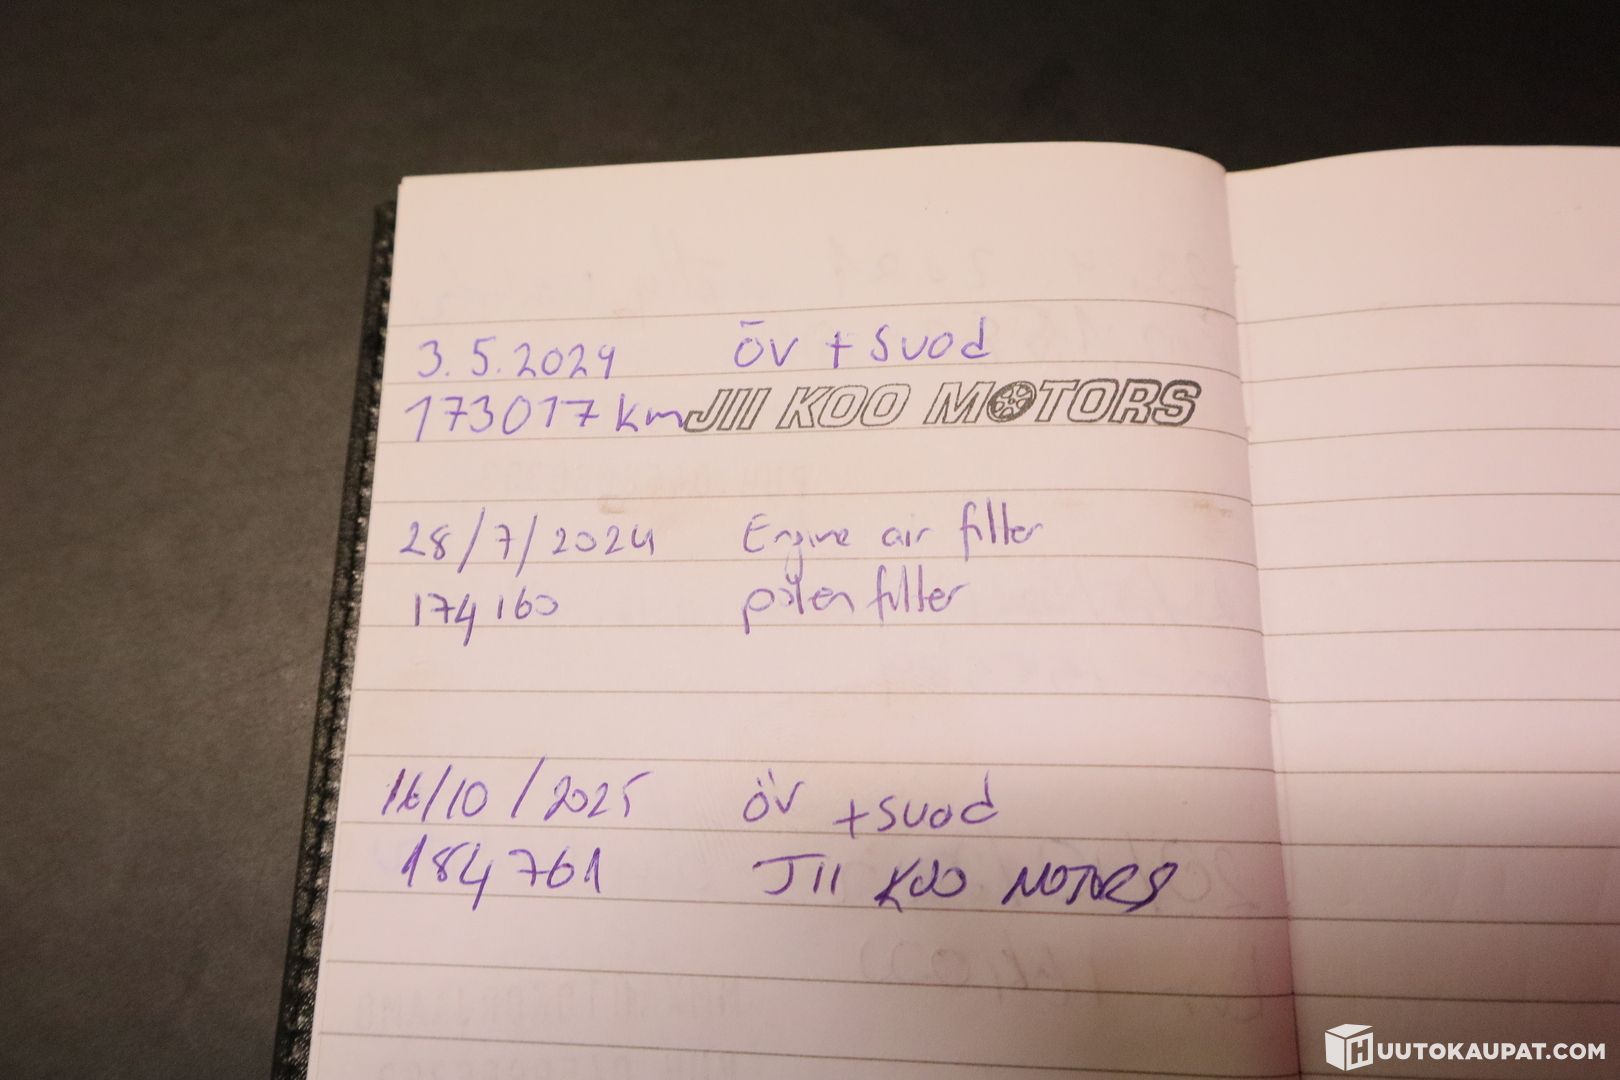 3.5.2024 ÖV + Suod
173017 km JII KOO MOTORS
28/7/2024 Engine air filter
174160 polen filter
16/10/2025 ÖV + Suod
184761 JII KOO MOTORS
HUUTOKAUPAT.COM